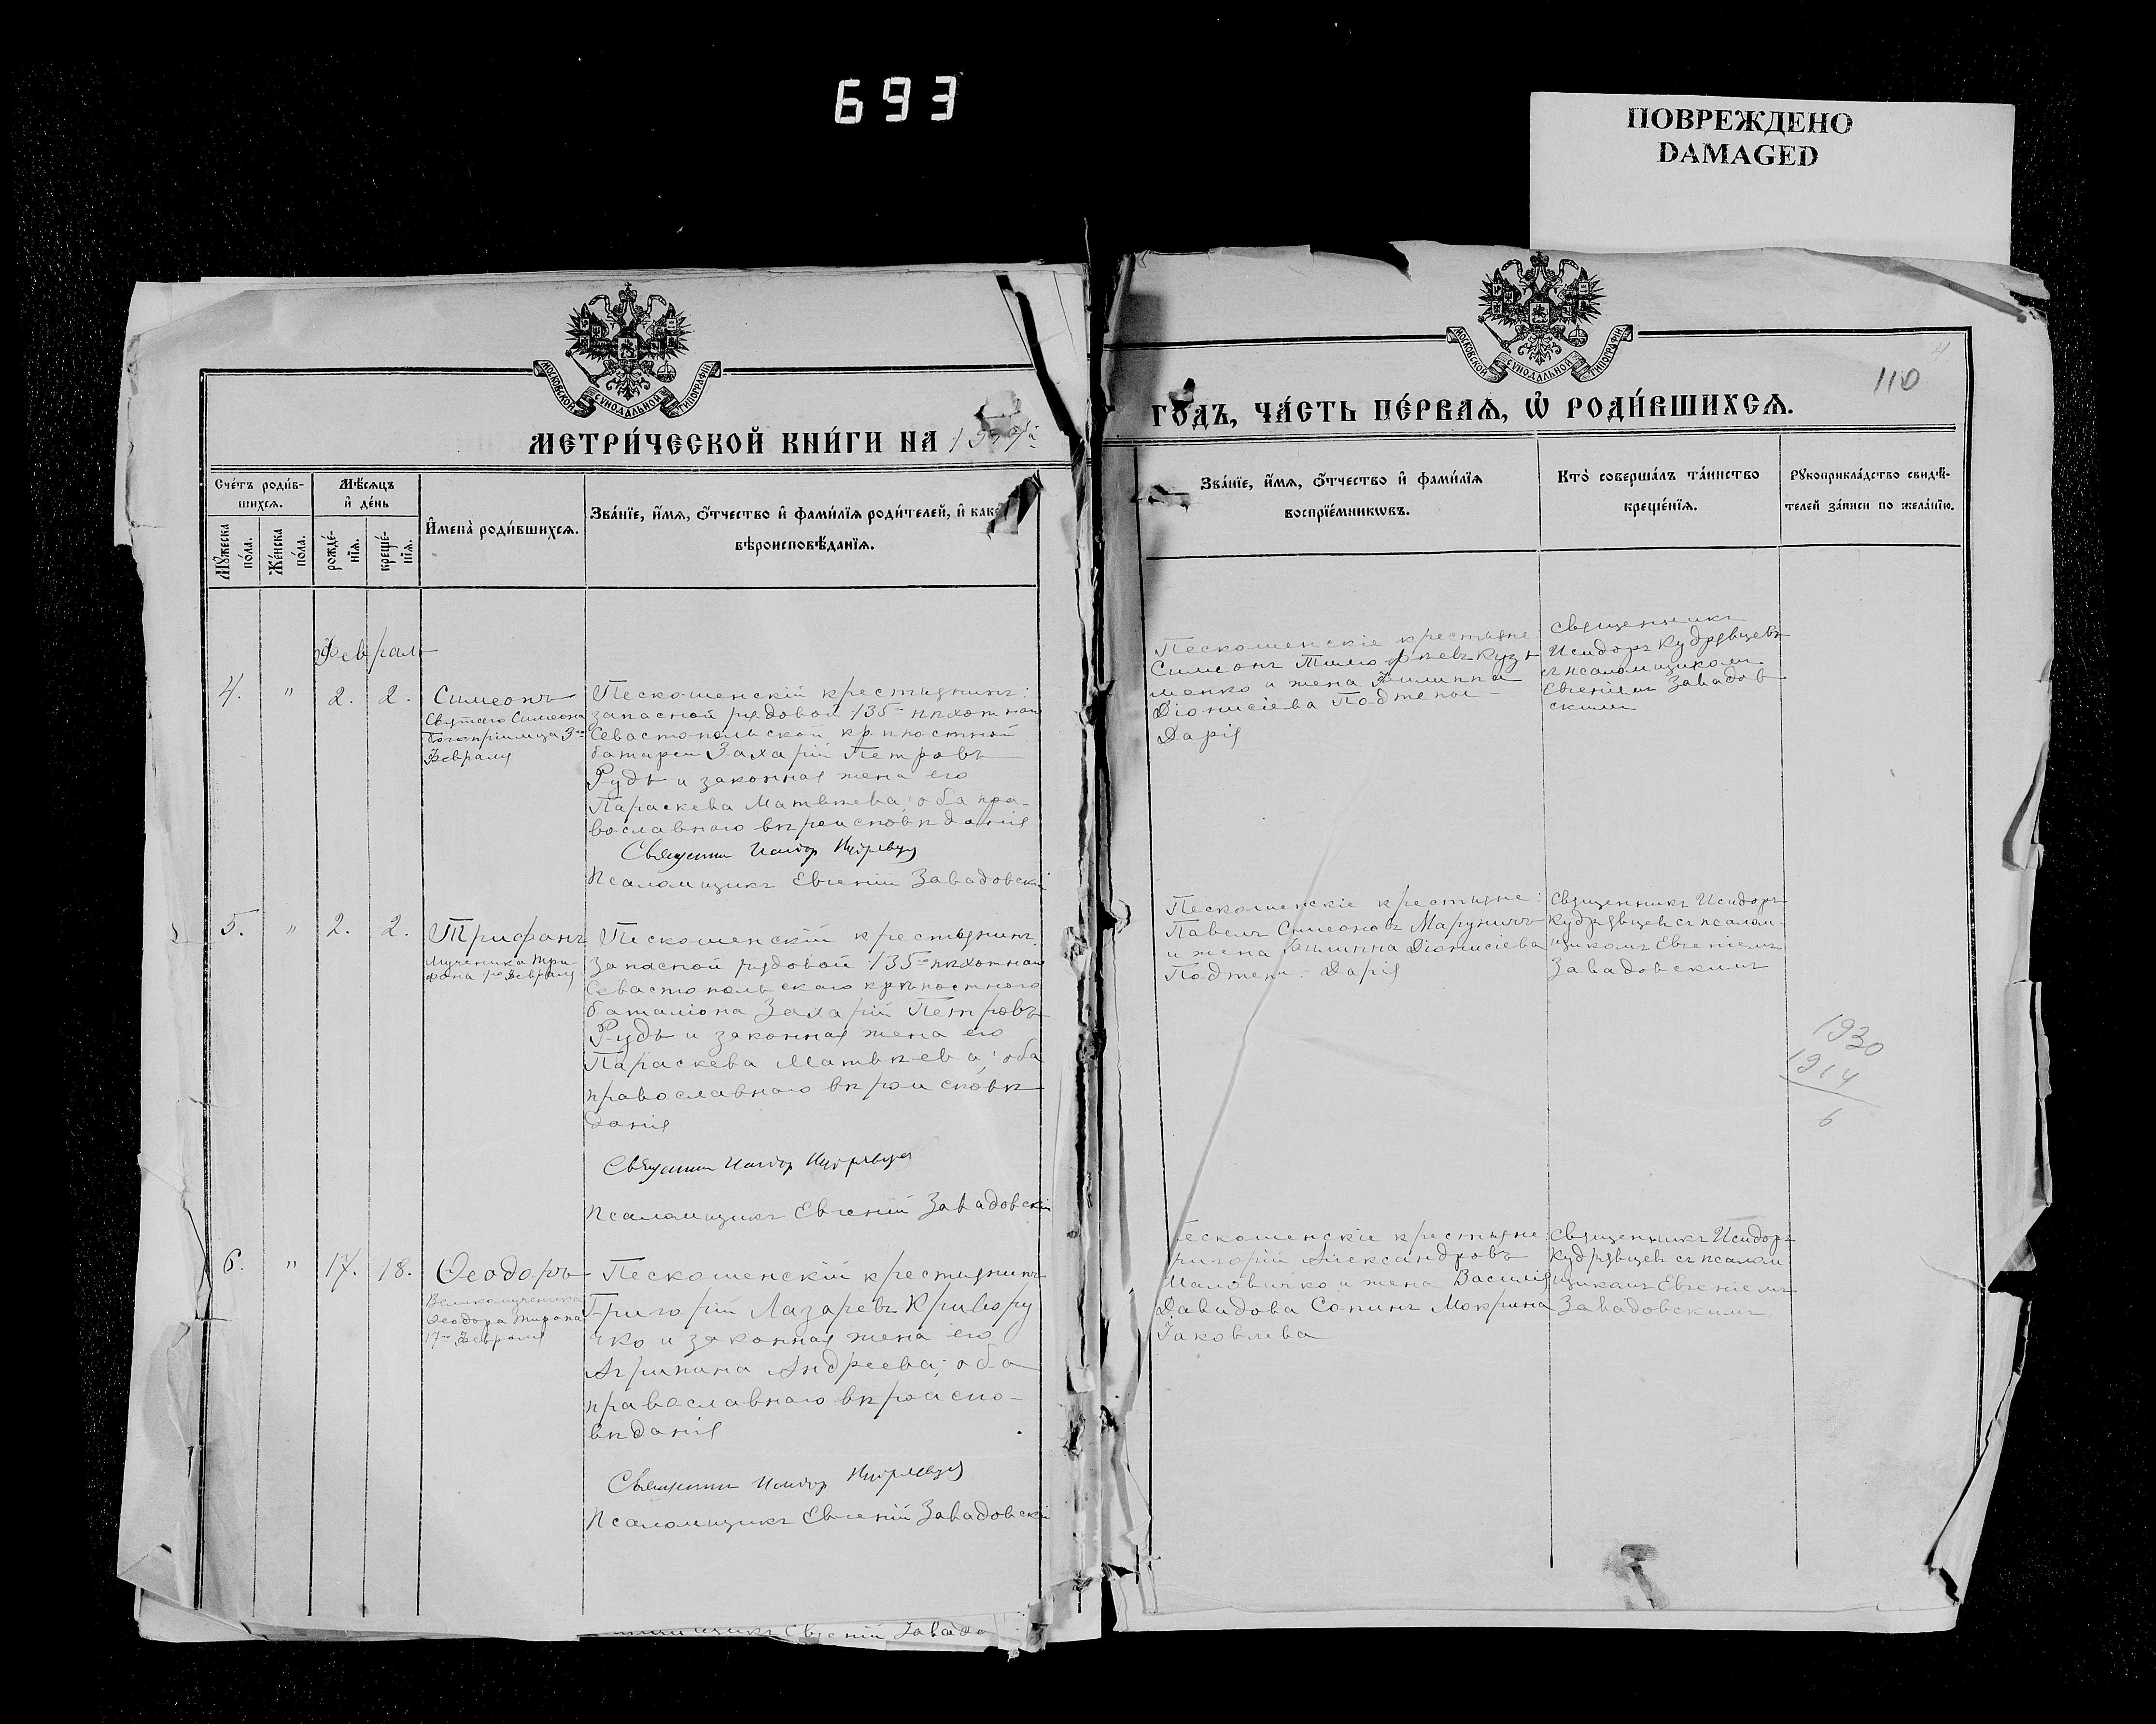 693
ПОВРЕЖДЕНО
DAMAGED
МОСКОВСКОЙ СУНОДАЛЬНОЙ ТИПОГРАФІИ
МОСКОВСКОЙ СУНОДАЛЬНОЙ ТИПОГРАФІИ
4
110
МЕТРИ́ЧЕСКОЙ КНИ́ГИ НА
ГО́ДЪ, ЧА́СТЬ ПЕ́РВАѦ, Ѡ҆ РОДИ́ВШИХСѦ.
Сче́тъ роди́в-
шихсѧ.
Мꙋ́жеска
по́ла.
Же́нска
по́ла.
Мѣ́сѧцъ
и҆ де́нь
рожде́-
нїѧ.
креще́-
нїѧ.
И҆мена̀ роди́вшихсѧ.
Зва́нїе, и҆́мѧ, ѻ҆́тчество и҆ фами́лїѧ роди́телей, и҆ како
вѣроисповѣ́данїѧ.
Зва́нїе, и҆́мѧ, ѻ҆́тчество и҆ фами́лїѧ
воспрїе́мникѡвъ.
Кто̀ соверша́лъ та́инство
креще́нїѧ.
Рꙋкоприкла́дство свидѣ́-
телей за́писи по жела́нїю.
Февраль
4.
"
2.
2.
Симеонъ
Святаго Симеона
Богопріимца 3го
Февраля
Пескошенскій крестьянинъ:
запасной рядовой 135й пѣхотной
Севастопольской крѣпостной
батареи Захарій Петровъ
Рудь и законная жена его
Параскева Матвѣева; оба пра-
вославнаго вѣроисповѣданія
Священник Исидор Кудрявцев
Псаломщикъ Евгеній Завадовскій
Пескошенскіе крестьяне:
Симеонъ Тимофѣевъ Кузь
менко и жена Филиппа
Діонисіева
Дарія
Священникъ
Исидоръ Кудрявцевъ
съ псаломщикомъ
Евгеніем Завадов
ским
5.
"
2.
2.
Трифонъ
Мученика Три-
фона 1го Февраля
Пескошенскій крестьянинъ,
запасной рядовой 135й пѣхотнаго
Севастопольскаго крѣпостного
баталіона Захарій Петровъ
Рудь и законная жена его
Параскева Матвѣева; оба
православнаго вѣроисповѣ
данія
Священник Исидор Кудрявцев
Псаломщикъ Евгеній Завадовскій
Пескошенскіе крестьяне:
Павелъ Симеоновъ
и жена Діонисіева
Дарія
Священникъ Исидоръ
Кудрявцев съ псалом-
щикомъ Евгеніемъ
Завадовскимъ
1930
1914
6
6.
"
17.
18.
Ѳеодоръ
Великомученика
Ѳеодора Тирона
17го Февраля
Пескошенскій крестьянинъ
Григорій Лазаревъ Криворуч
ко и законная жена его
Агрипина Андреева; оба
православнаго вѣроиспо-
вѣданія
Священник Исидор Кудрявцев
Псаломщикъ Евгеній Завадовскій
Пескошенскіе крестьяне:
Григорій Александровъ
Маловичко и жена Василія
Давидова Сопинъ Мокрина
Іаковлева
Священникъ Исидоръ
Кудрявцев съ псалом
щикомъ Евгеніемъ
Завадовскимъ
Евгеній Завадо